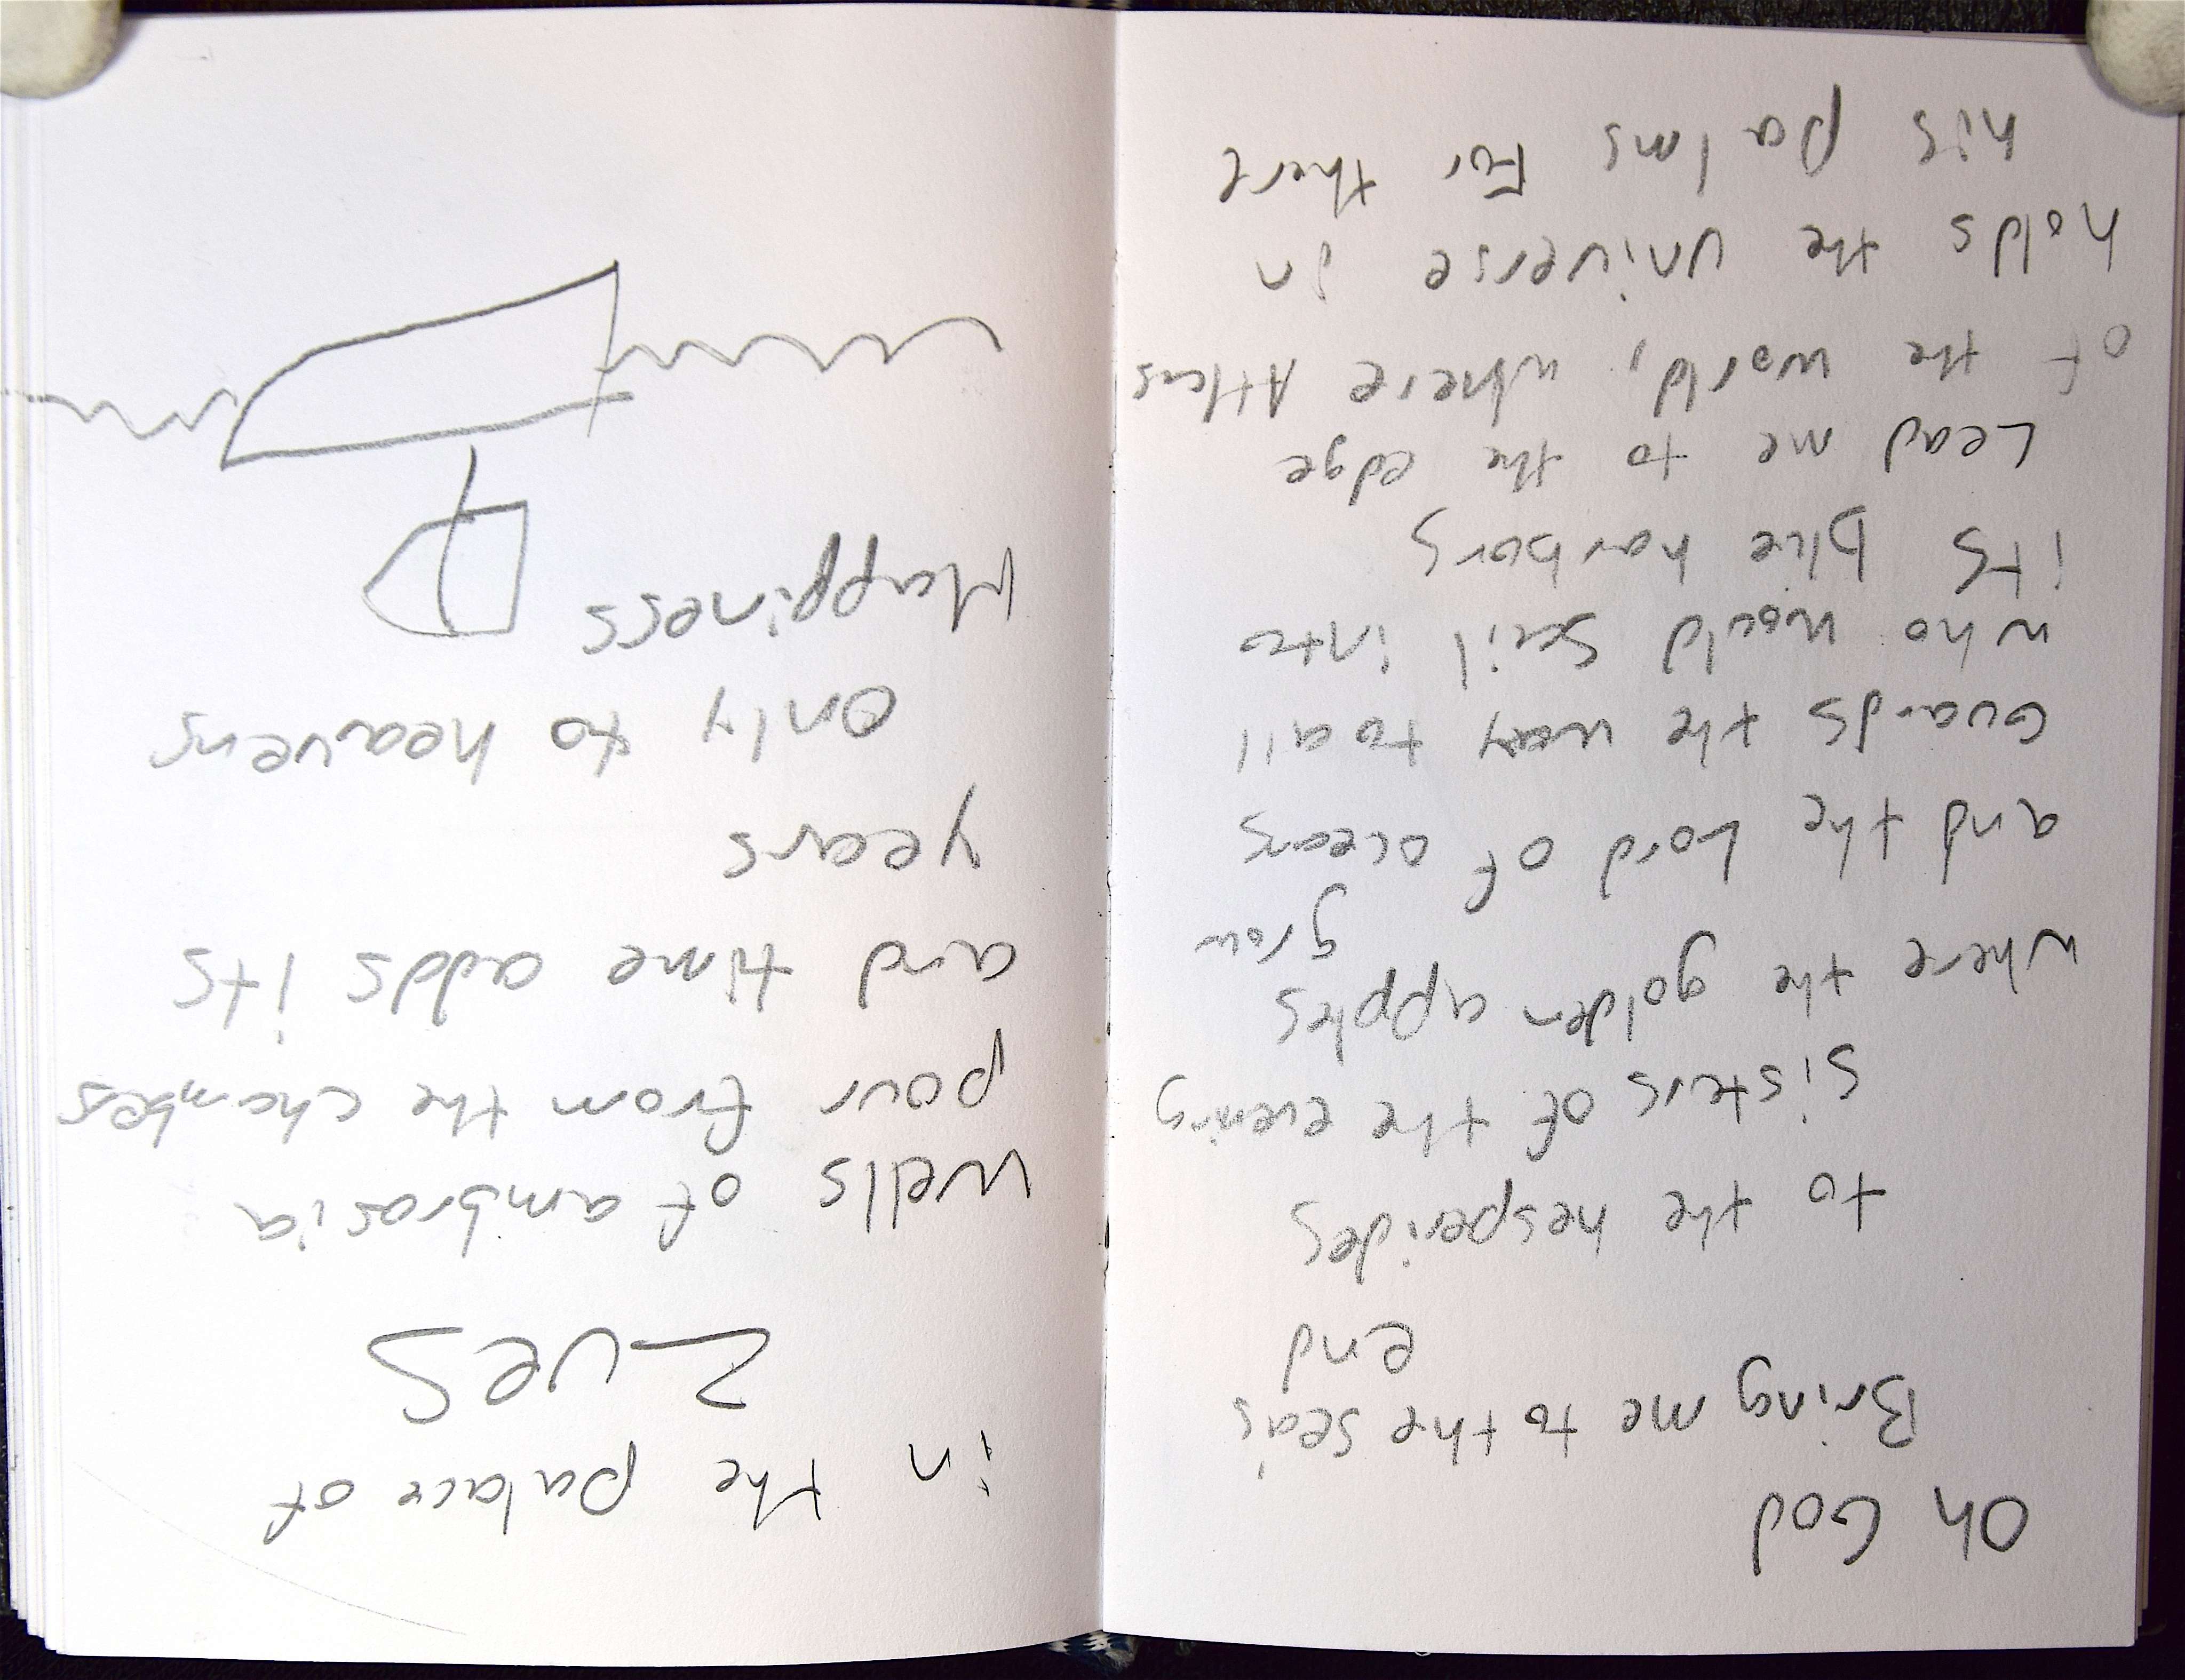 Oh God
Bring me to the seas
end
to the hesperides
sisters of the evening
where the golden apples
grow
and the Lord of oceans
Guards the way to all
who would sail into
its blue harbors
Lead me to the edge
of the world, where Atlas
holds the universe in
his palms For there
in the palace of
Zues
wells of ambrosia
pour from the chambers
and time adds its
years
only to heavens
Happiness